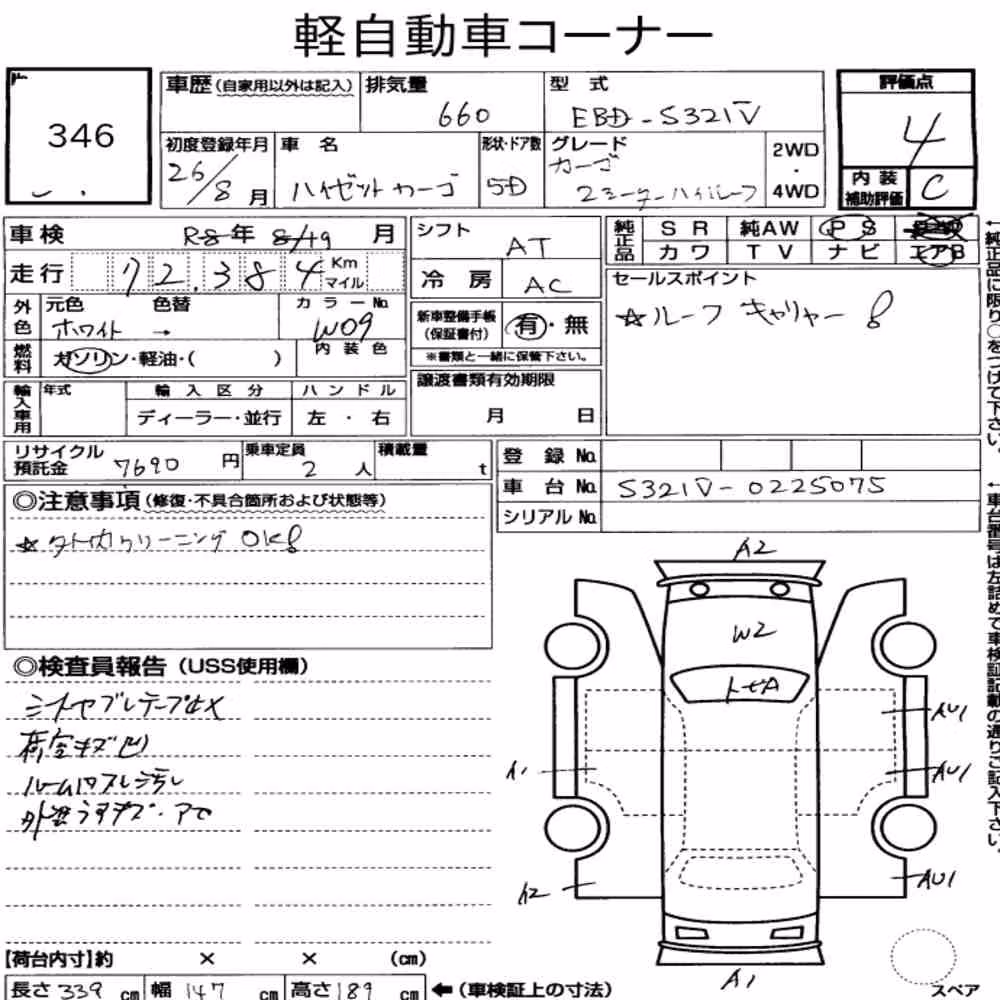 軽自動車コーナー
346
車歴(自家用以外は記入)
排気量
660
型 式
EBD-S321V
評価点
4
初度登録年月
26/8月
車 名
ハイゼットカーゴ
形状・ドア数
5D
グレード
カーゴ
2WD
・
4WD
内 装
補助評価
C
車検
R8年 8/19 月
走行
72,384
Km
マイル
シフト
AT
冷 房
AC
純正品
S R
純AW
P S
カ ワ
T V
ナ ビ
エアB
セールスポイント
☆ルーフ キャリャー!
外色
元色
色替
ホワイト →
カラーNo
W09
内 装 色
燃料
ガソリン・軽油・( )
新車整備手帳
(保証書付)
有・無
※書類と一緒に保管下さい。
譲渡書類有効期限
月 日
輸入車用
年式
輸 入 区 分
ディーラー・並行
ハ ン ド ル
左 ・ 右
リサイクル
預託金
7690 円
乗車定員
2 人
積載量
t
登 録 No.
車 台 No.
S321V-0225075
シリアル No.
◎注意事項(修復・不具合箇所および状態等)
クリーニング OK!
◎検査員報告(USS使用欄)
シートヤブレテープ
荷室キズ凹
ルーム内スレ汚レ
外装
A2
W2
A1
AU1
AU1
A2
AU1
A1
スペア
【荷台内寸】約 × × (cm)
長さ 339 cm
幅 147 cm
高さ 189 cm
←(車検証上の寸法)
←純正品に限り○をつけて下さい。
←車台番号は左詰めで車検証記載の通りご記入下さい。